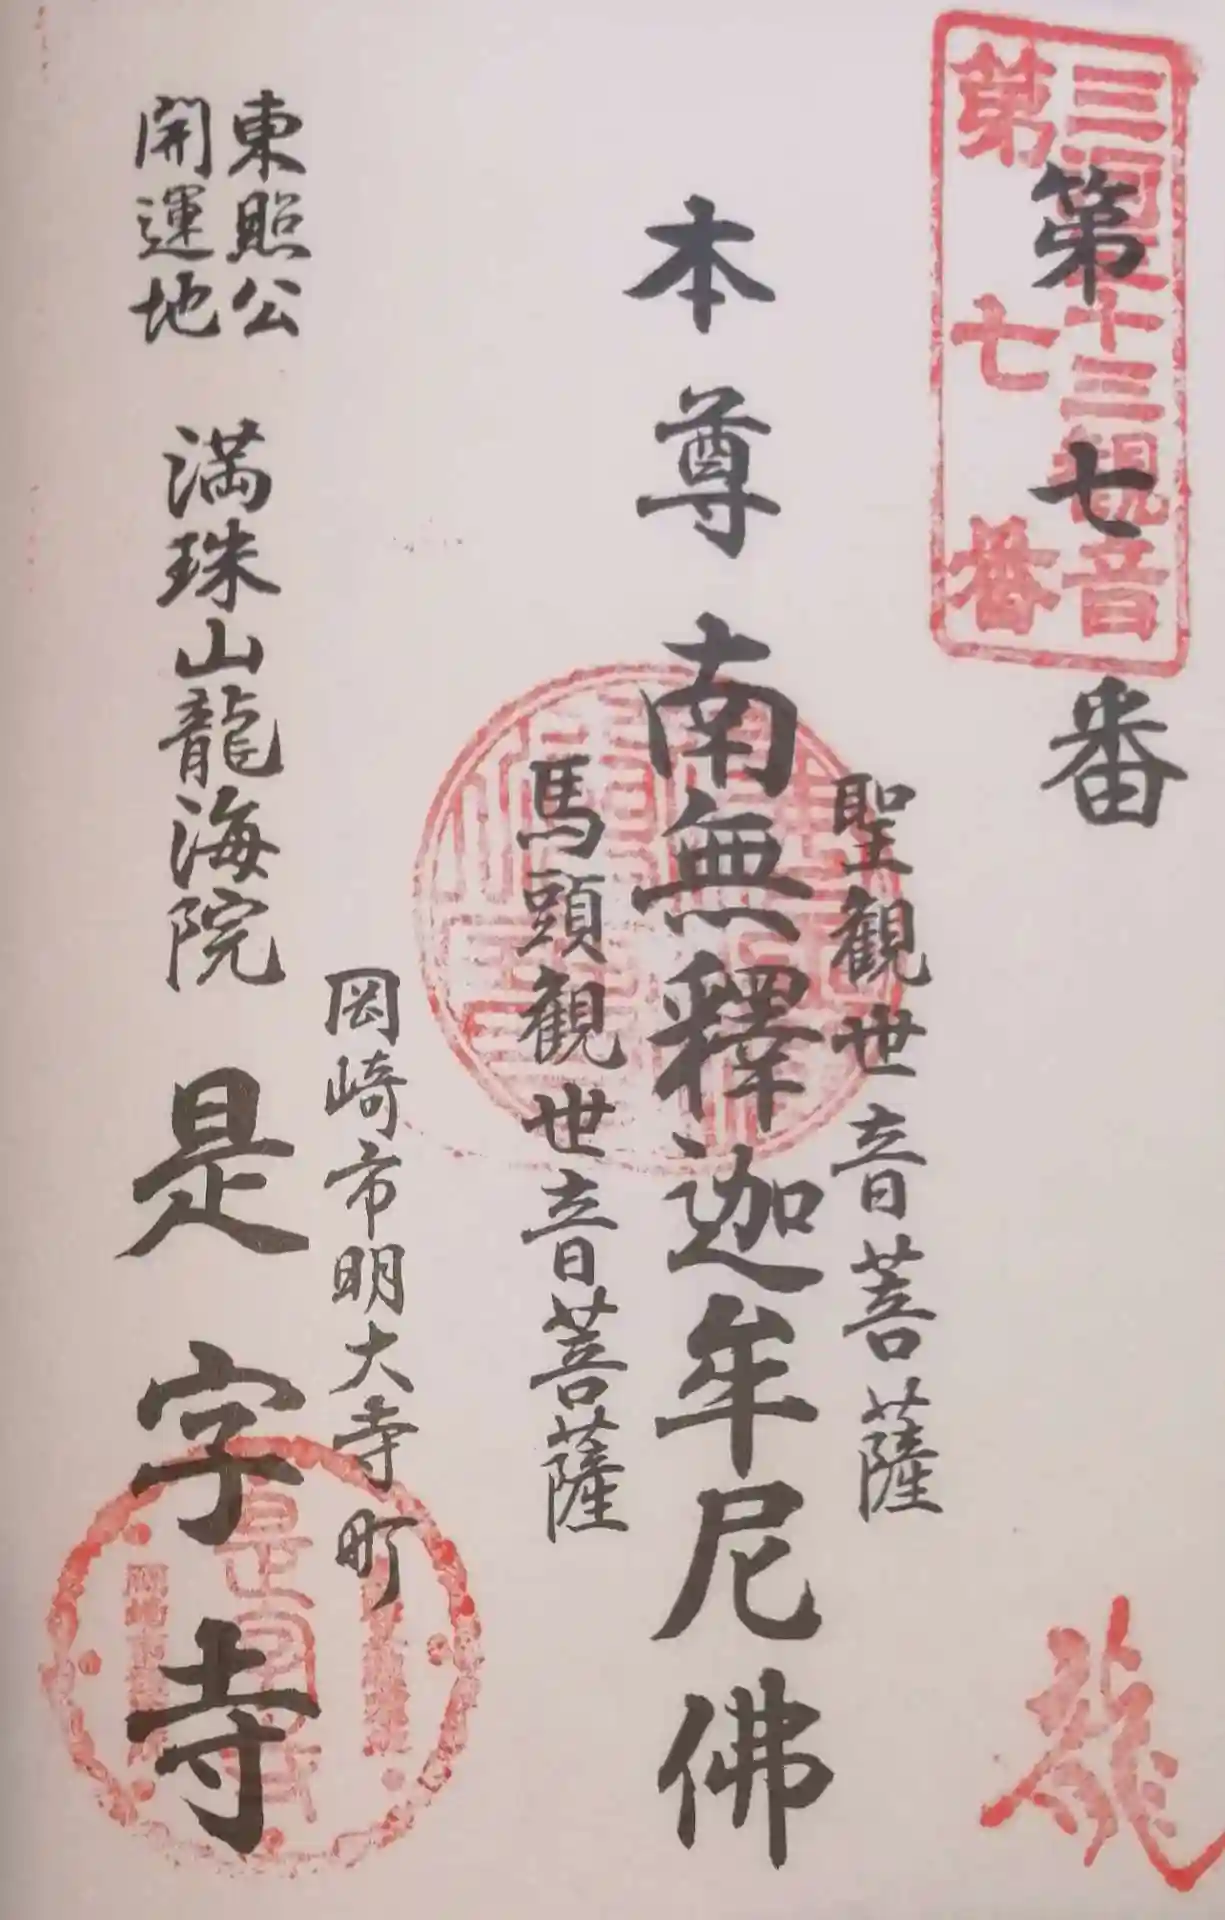 三河三十三観音
第七番
第七番
聖観世音菩薩
本尊 南無釋迦牟尼佛
馬頭観世音菩薩
岡崎市明大寺町
東照公
開運地
満珠山龍海院 是字寺
龍